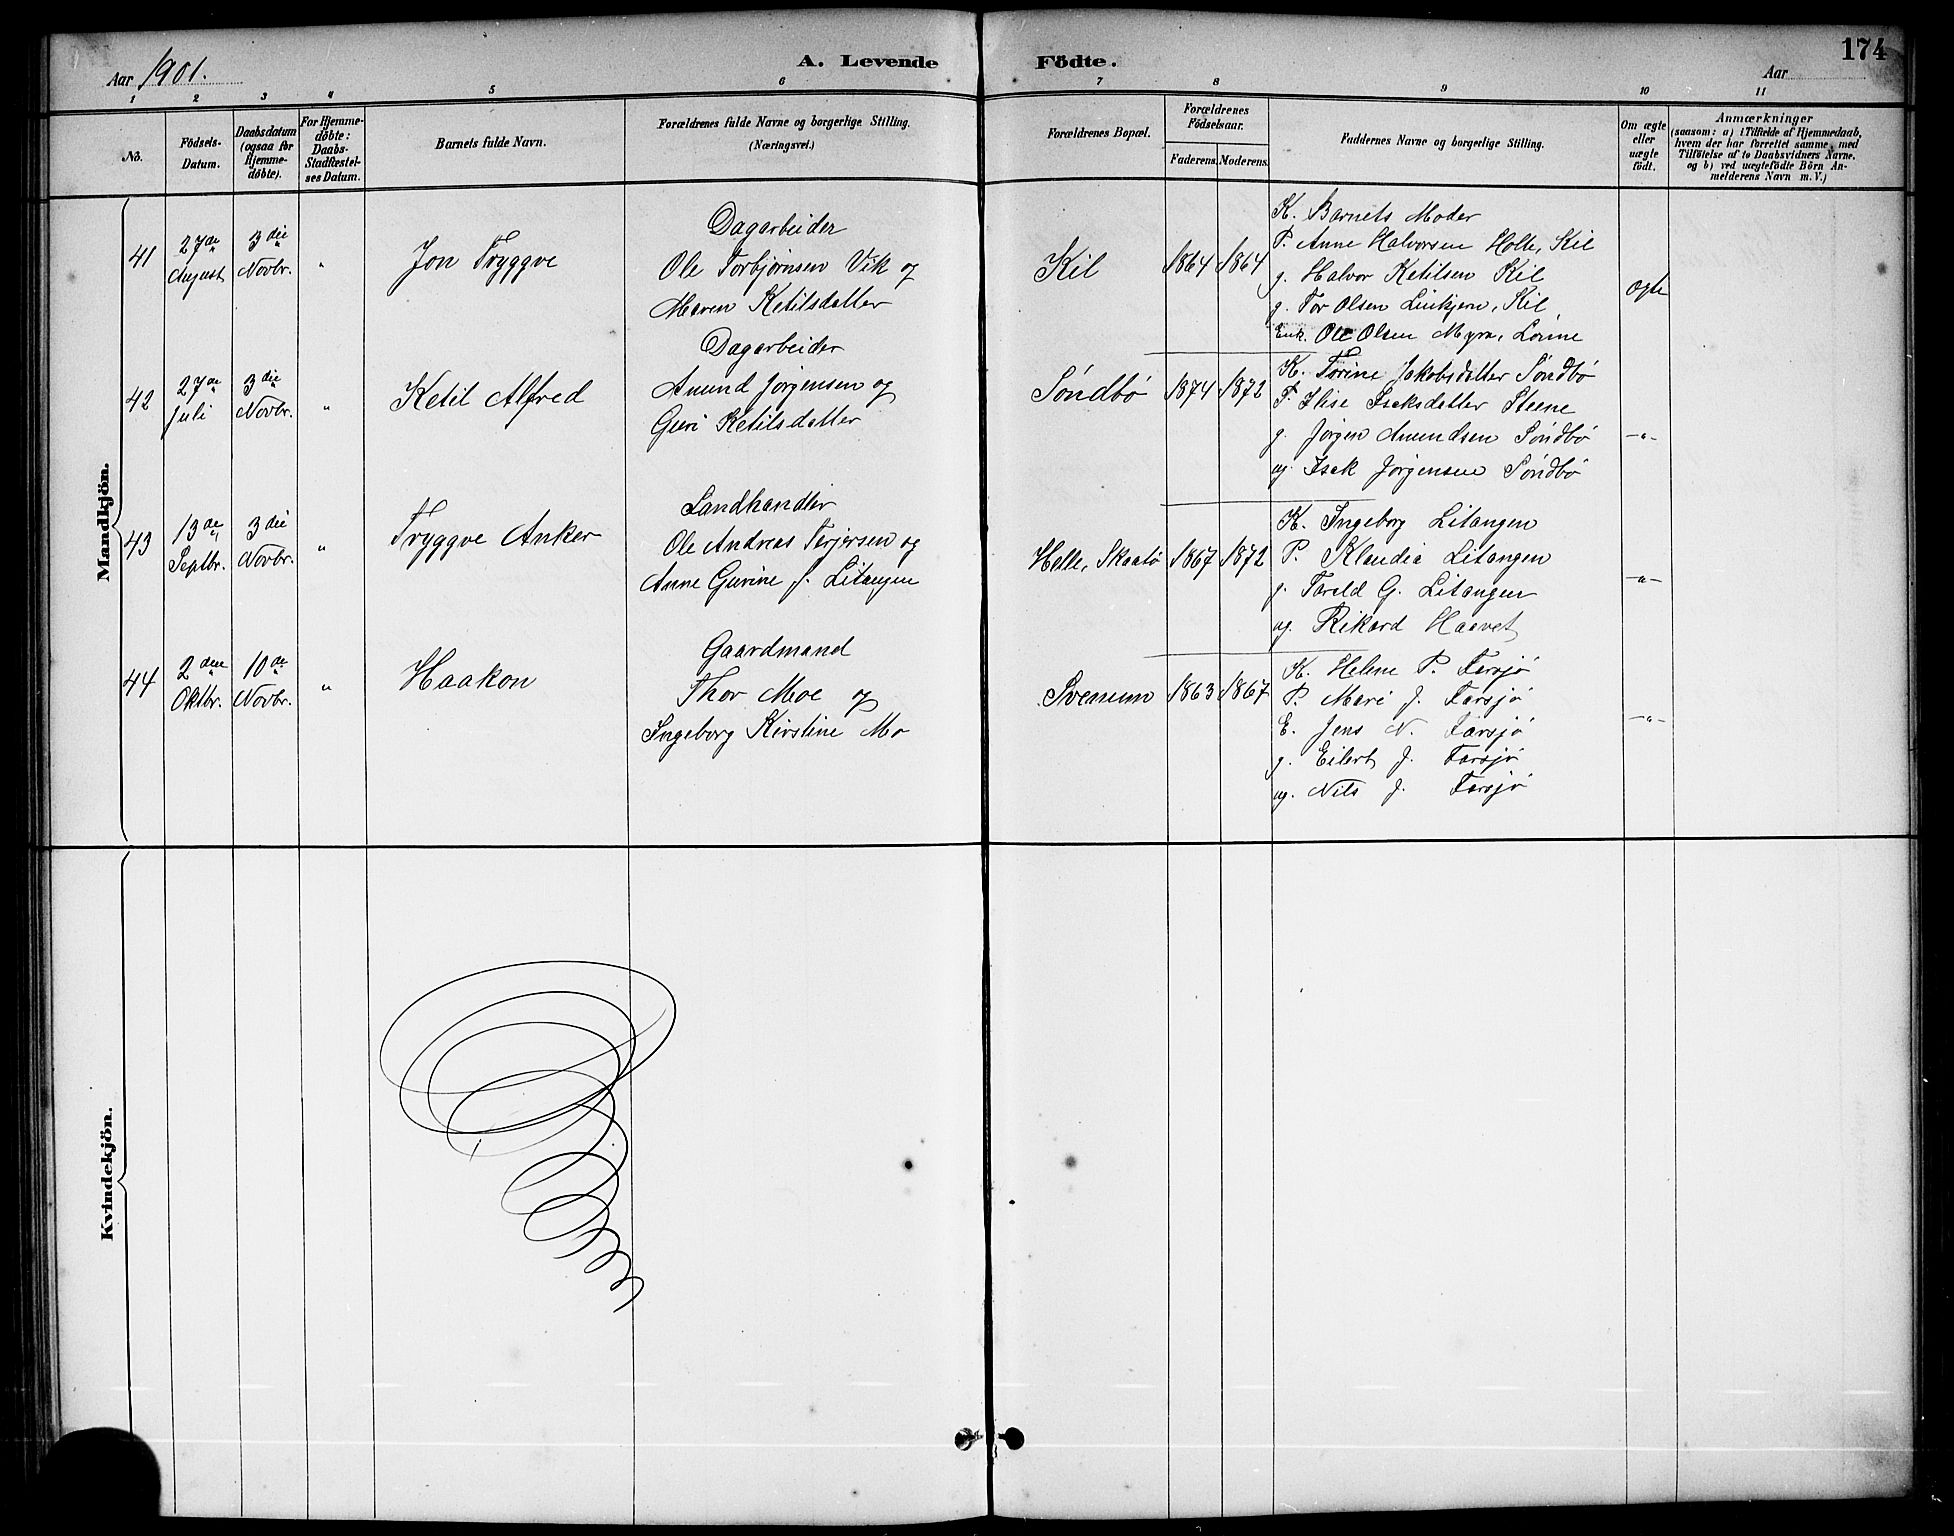 Aar 1901.
A. Levende Födte.
174
Aar
1 2 3 4 5 6 7 8 9 10 11
No.
Födsels-
Datum.
Daabsdatum
(ogsaa for
Hjemme-
döbte).
For Hjemme-
döbte:
Daabs-
Stadfæstel-
ses Datum.
Barnets fulde Navn.
Forældrenes fulde Navne og borgerlige Stilling.
(Næringsvei.)
Forældrenes Bopæl.
Forældrenes
Födselsaar.
Faderens. Moderens.
Faddernes Navne og borgerlige Stilling.
Om ægte
eller
uægte
födt.
Anmærkninger
(saasom: a) i Tilfælde af Hjemmedaab,
hvem der har forrettet samme, med
Tilföielse af to Daabsvidners Navne.
og b) ved uægtefödte Börn An-
melderens Navn m. V.)
Mandkjön.
41
27de
August
3die
Novbr.
"
Jon Tryggve
Dagarbeider
Ole Torbjørnsen Vik og
Maren Ketilsdatter
Kil
1864
1864
K. Barnets Moder
P. Anne Halvorsen Holte, Kil
g. Halvor Ketilsen Kil
g. Tor Olsen Linkjern, Kil
Enk. Ole Olsen Myra, Lönne
ægte
42
27de
Juli
3die
Novbr.
"
Ketil Alfred
Dagarbeider
Anund Jörgensen og
Guri Ketilsdatter
Söndbö
1874
1872
K. Torine Jakobsdatter Söndbö
P. Ilise Isaksdatter Steene
g. Jörgen Anundsen Söndbö
ug. Isak Jörgensen Söndbö
-"-
43
13de
Septbr.
3die
Novbr.
"
Tryggve Anker
Landhandler
Ole Andreas Terjersen og
Anne Gurine f. Litangen
Helle, Skaatö
1867
1872
K. Ingeborg Litangen
P. Klaudia Litangen
g. Tarald G. Litangen
ug. Rikard Haavet
-"-
44
2den
Oktbr.
10de
Novbr.
"
Haakon
Gaardmand
Thor Moe og
Ingeborg Kirstine Mo
Svenum
1863
1867
K. Helene P. Farsjö
P. Mari J. Farsjö
E. Jens N. Farsjö
g. Eilert J. Farsjö
ug. Nils J. Farsjö
-"-
Kvindekjön.